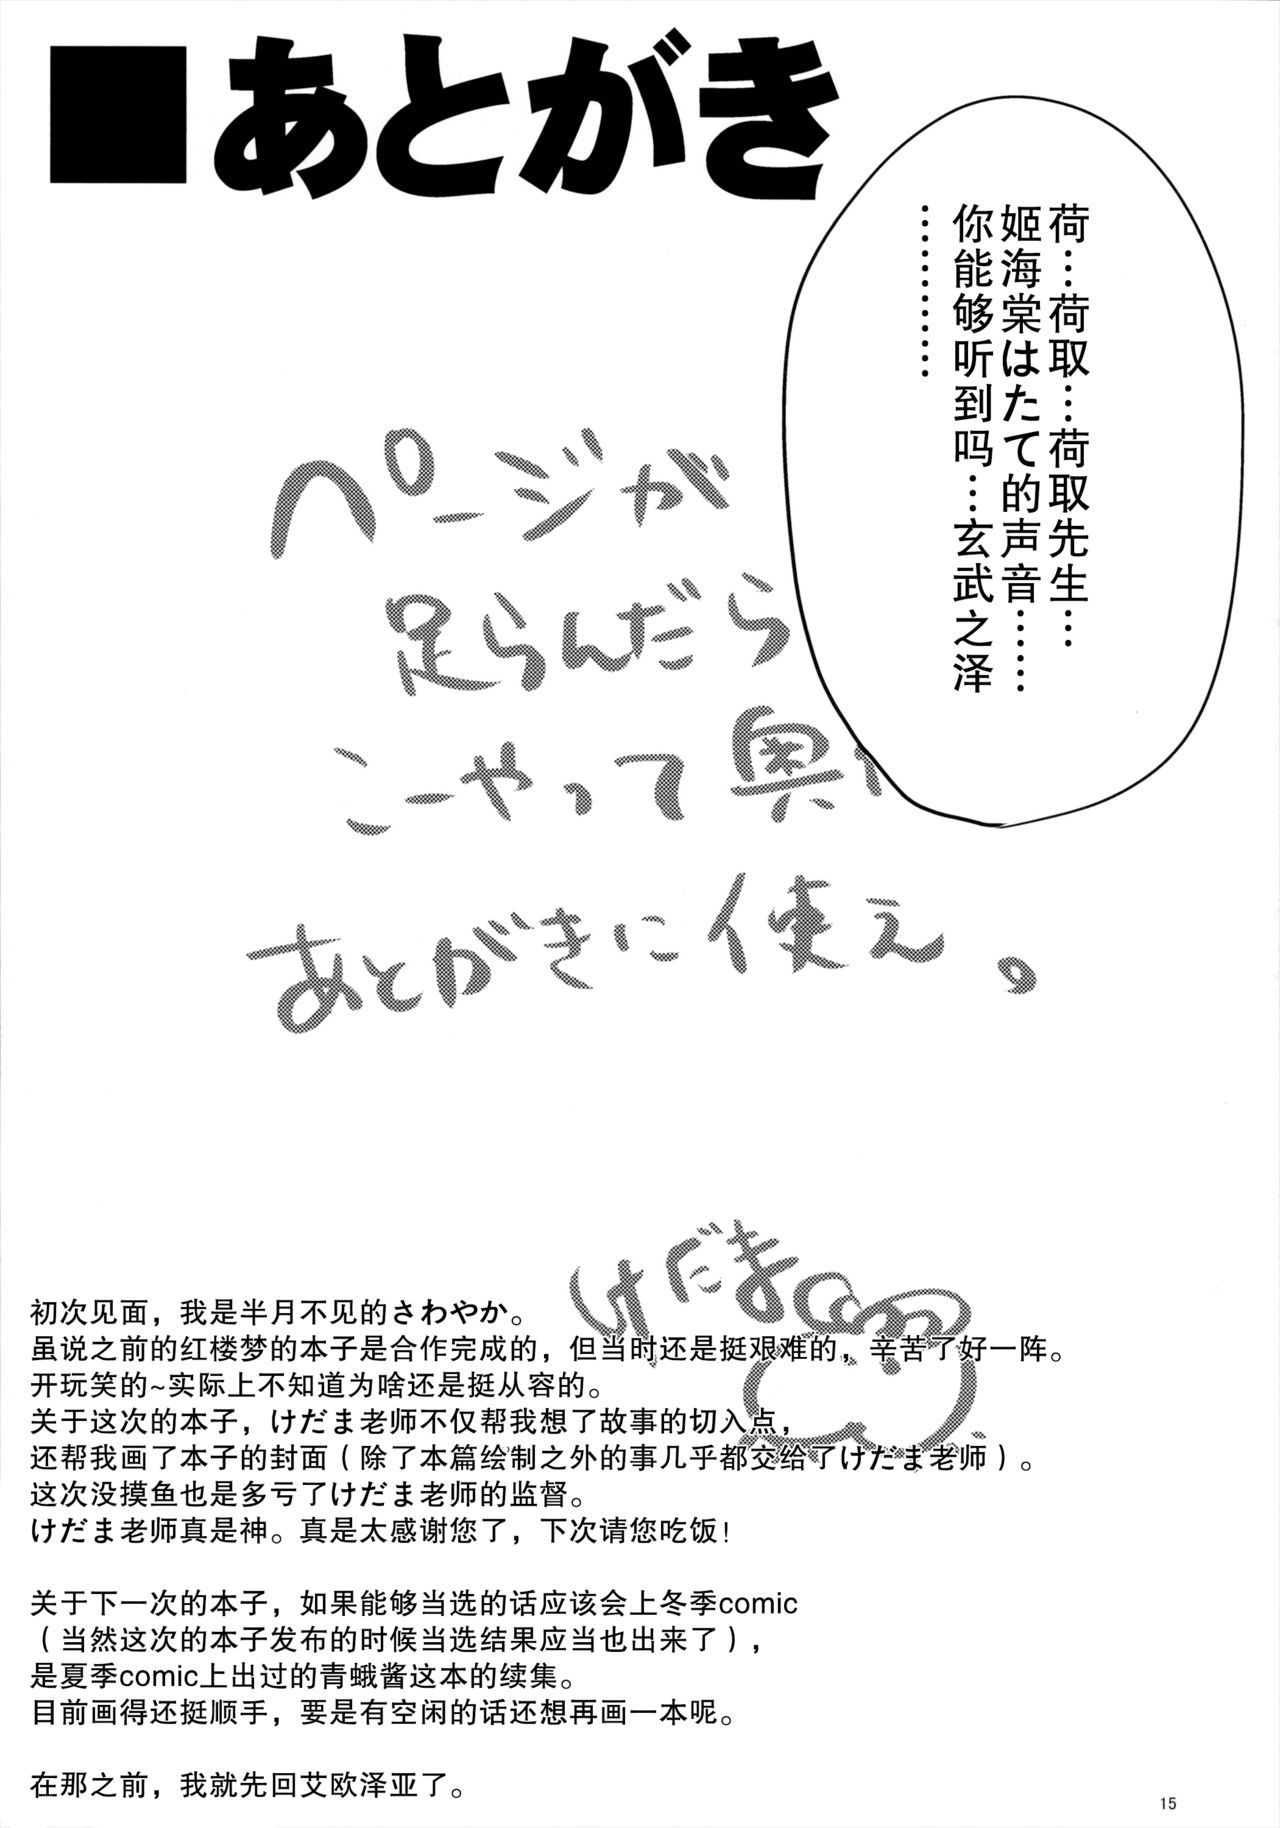 ■あとがき
荷…荷取…荷取先生…
姬海棠はたて的声音……
你能够听到吗…玄武之泽
…………
ページが
足らんだら
こーやって奥
あとがきに使え。
けだま
初次见面，我是半月不见的さわやか。
虽说之前的红楼梦的本子是合作完成的，但当时还是挺艰难的，辛苦了好一阵。
开玩笑的~实际上不知道为啥还是挺从容的。
关于这次的本子，けだま老师不仅帮我想了故事的切入点，
还帮我画了本子的封面（除了本篇绘制之外的事几乎都交给了けだま老师）。
这次没摸鱼也是多亏了けだま老师的监督。
けだま老师真是神。真是太感谢您了，下次请您吃饭！
关于下一次的本子，如果能够当选的话应该会上冬季comic
（当然这次的本子发布的时候当选结果应当也出来了），
是夏季comic上出过的青蛾酱这本的续集。
目前画得还挺顺手，要是有空闲的话还想再画一本呢。
在那之前，我就先回艾欧泽亚了。
15